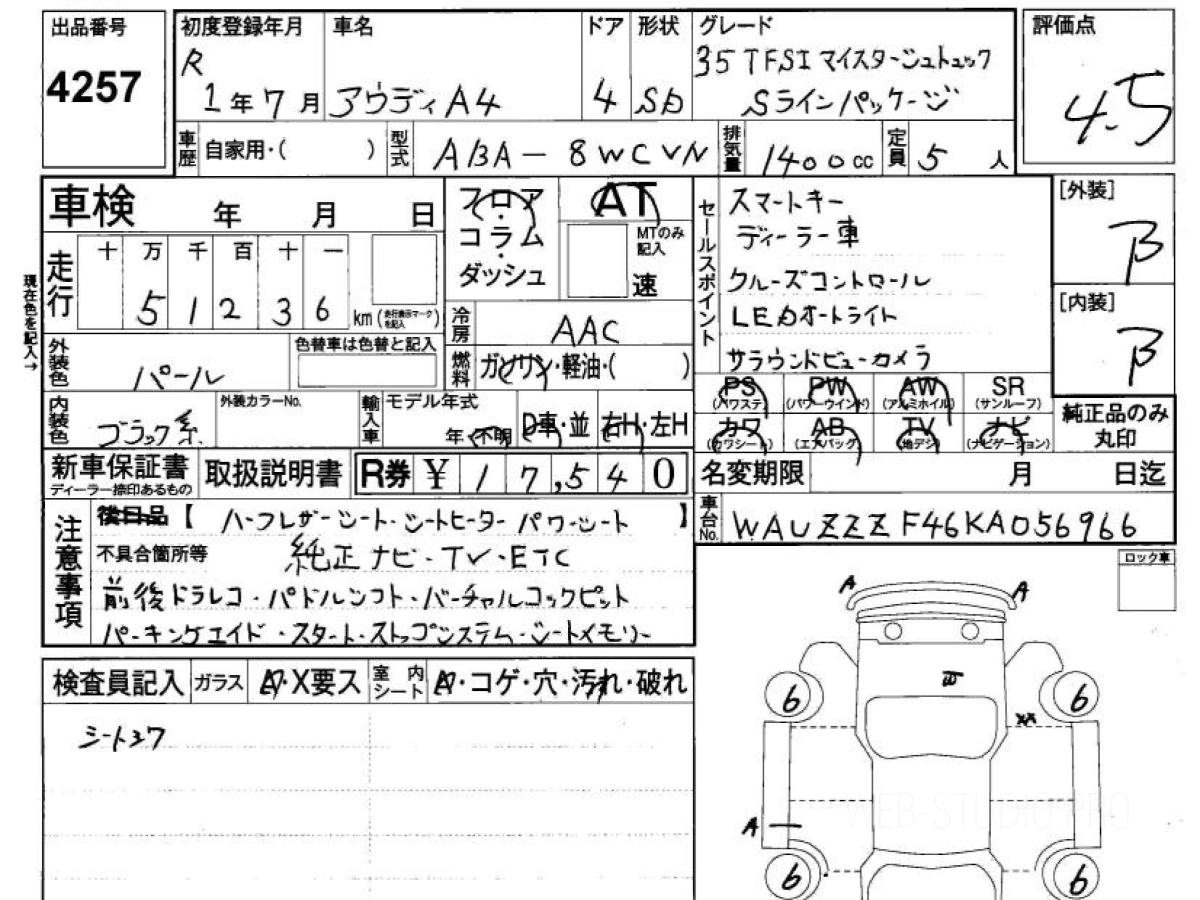 出品番号
4257
初度登録年月
R
1年7月
車名
アウディA4
ドア
4
形状
SD
グレード
35TFSI マイスターシュトュック
Sラインパッケージ
評価点
4.5
車歴 自家用・( )
型式 ABA-8WCVN
排気量 1400cc
定員 5人
車検 年 月 日
フロア・コラム・ダッシュ
AT
MTのみ記入
速
セールスポイント
スマートキー
ディーラー車
クルーズコントロール
LEDオートライト
サラウンドビューカメラ
[外装]
B
[内装]
B
現在色を記入→
走行 十 万 千 百 十 一
5 1 2 3 6 km(走行表示マークを記入)
冷房 AAC
外装色 パール
色替車は色替と記入
燃料 ガソリン・軽油・( )
内装色 ブラック系
外装カラーNo.
輸入車 モデル年式
年・不明
D車・並
右H・左H
PS (パワステ) PW (パワーウインド) AW (アルミホイル) SR (サンルーフ)
カワ (カワシート) AB (エアバッグ) TV (地デジ) ナビ (ナビゲーション)
純正品のみ丸印
新車保証書
ディーラー捺印あるもの
取扱説明書
R券 ¥ 17,540
名変期限 月 日迄
車台No. WAUZZZF46KA056966
注意事項
後日品【ハーフレザーシート・シートヒーター パワーシート】
不具合箇所等 純正ナビ・TV・ETC
前後ドラレコ・パドルシフト・バーチャルコックピット
パーキングエイド・スタート・ストップシステム・シートメモリー
ロック車
検査員記入 ガラス ・X要ス 室内シート ・コゲ・穴・汚れ・破れ
シートスワ
A A
6 6
XX
A
6 6
WEB-STUDIO.PRO